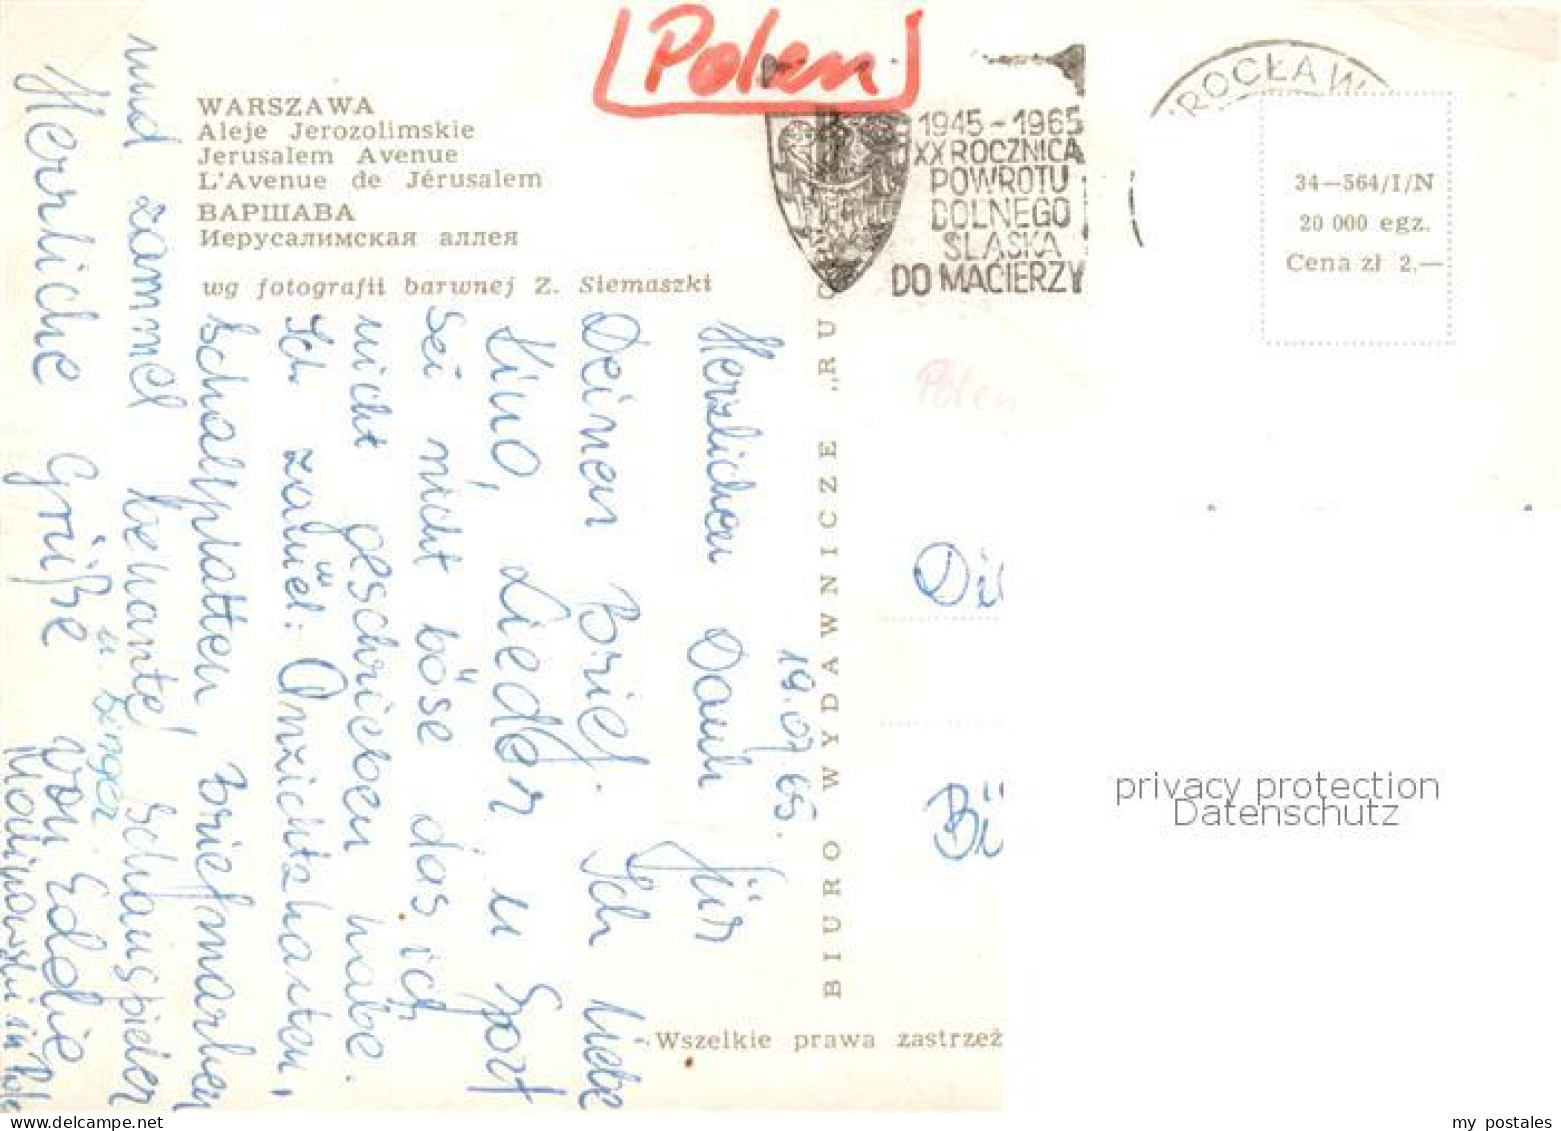 [Polen]
WARSZAWA
Aleje Jerozolimskie
Jerusalem Avenue
L'Avenue de Jérusalem
ВАРШАВА
Иерусалимская аллея
wg fotografii barwnej Z. Siemaszki
1945-1965
XX ROCZNICA
POWROTU
DOLNEGO
ŚLĄSKA
DO MACIERZY
ROCŁAW
34—564/I/N
20 000 egz.
Cena zł 2.—
Polen
BIURO WYDAWNICZE „RUC
19.07.65.
Herzlichen Dank für
Deinen Brief. Ich liebe
Kino, Lieder u Sport
Sei nicht böse das ich
nicht geschrieben habe.
Ich zamel: Anzichtskarten,
Schallplatten, Briefmarken
und zammel bekante Schauspieler
u. Singer
Herrliche Grüße von Eddie
Malinowski in
Wszelkie prawa zastrzeż
privacy protection
Datenschutz
my postales